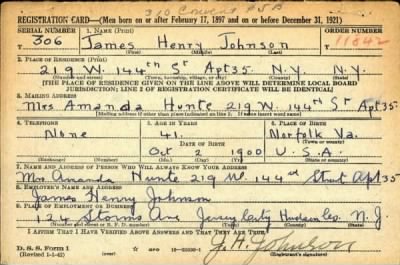 REGISTRATION CARD—(Men born on or after February 17, 1897 and on or before December 31, 1921)
SERIAL NUMBER
1. NAME (Print)
ORDER NUMBER
306
James Henry Johnson
11842
(First) (Middle) (Last)
2. PLACE OF RESIDENCE (Print)
219 W. 144th St Apt 35 N.Y. N.Y.
(Number and street) (Town, township, village, or city) (County) (State)
[THE PLACE OF RESIDENCE GIVEN ON THE LINE ABOVE WILL DETERMINE LOCAL BOARD
JURISDICTION; LINE 2 OF REGISTRATION CERTIFICATE WILL BE IDENTICAL]
3. MAILING ADDRESS
Mrs Amanda Hunte 219 W. 144th St Apt 35
(Mailing address if other than place indicated on line 2. If same insert word same)
4. TELEPHONE
5. AGE IN YEARS
6. PLACE OF BIRTH
None
41
Norfolk Va.
(Town or county)
DATE OF BIRTH
Oct 2 1900
U.S.A
(Exchange) (Number) (Mo.) (Day) (Yr.) (State or country)
7. NAME AND ADDRESS OF PERSON WHO WILL ALWAYS KNOW YOUR ADDRESS
Mrs Amanda Hunte 219 W. 144th Street Apt 35
8. EMPLOYER'S NAME AND ADDRESS
James Henry Johnson
9. PLACE OF EMPLOYMENT OR BUSINESS
124 Storms Ave Jersey City Hudson Co. N.J.
(Number and street or R. F. D. number) (Town) (County) (State)
I AFFIRM THAT I HAVE VERIFIED ABOVE ANSWERS AND THAT THEY ARE TRUE.
D. S. S. Form 1
(Revised 1-1-42)
J.H. Johnson
(Registrant's signature)